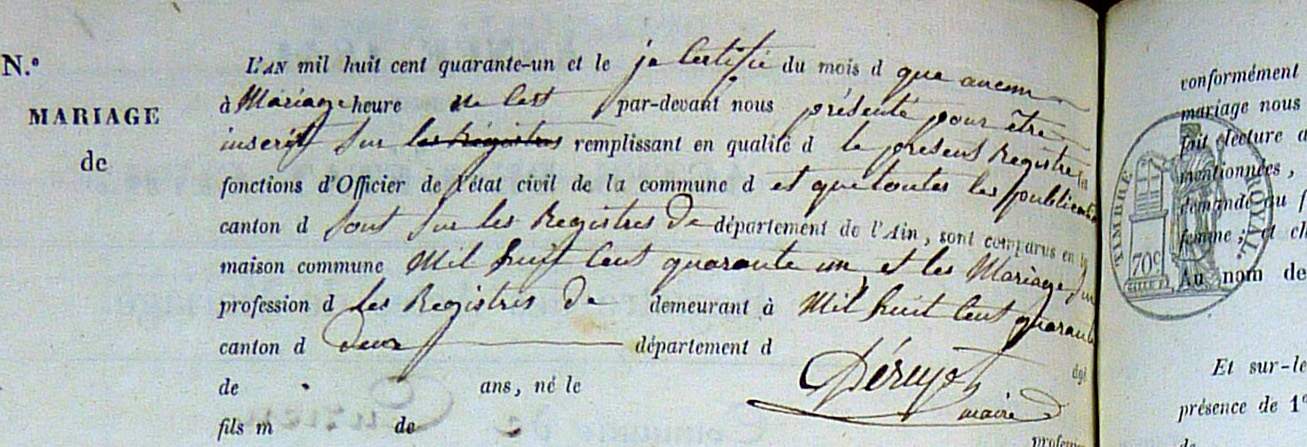 N.° L'AN mil huit cent quarante-un et le je Certifie du mois d que aucun
MARIAGE
de
à Mariage heure ne s'est par-devant nous présenté pour être
inscrit sur les Régistres remplissant en qualité d le présent Registre
fonctions d'Officier de l'état civil de la commune d et que toutes les publications
canton d sont sur les Registres de département de l'Ain, sont comparus en la
maison commune Mil huit Cent quarante un et les Mariages
profession d les Registres de demeurant à Mil huit Cent quarante
canton d deux département d
Péruyot
de ans, né le
maire
fils m de
profess
conformément
mariage nous
fait lecture a
mentionnées,
demandé au f
femme; et ch
Au nom de
TIMBRE ROYAL
70c
Et sur-le
présence de 1°
de